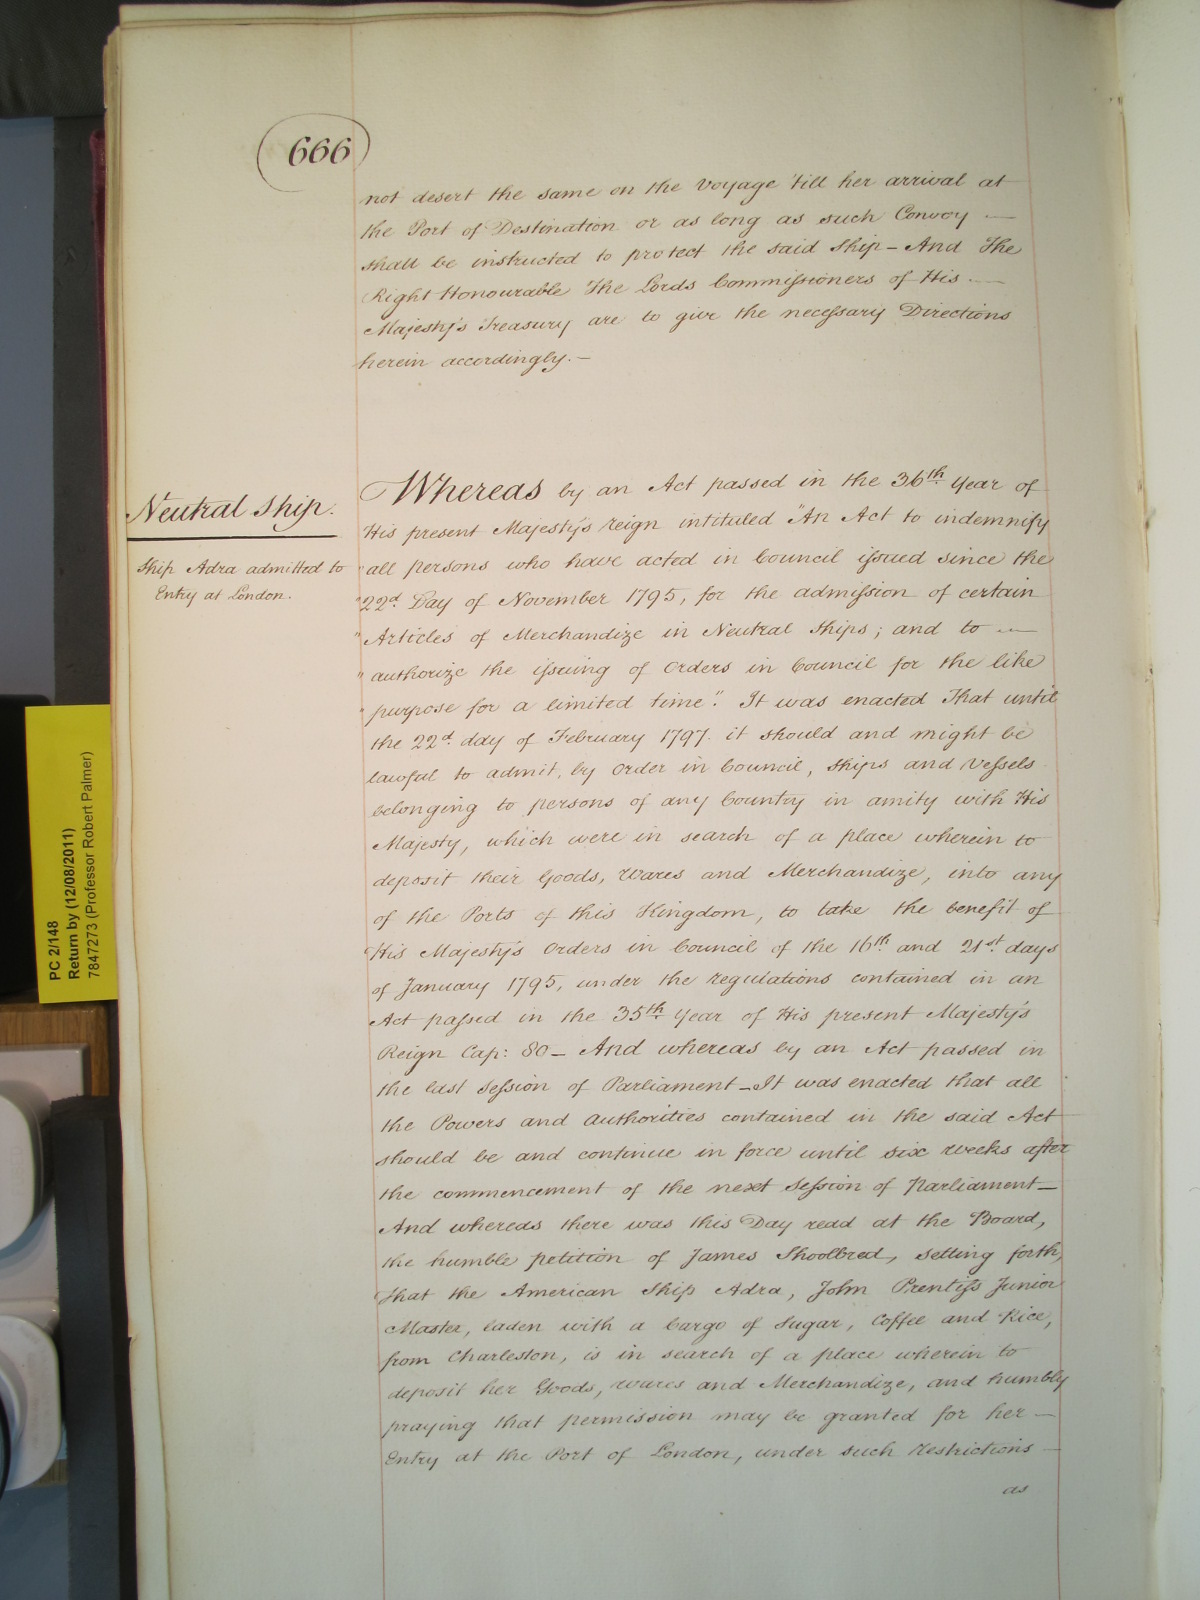 666
not desert the same on the Voyage 'till her arrival at
the Port of Destination or as long as such Convoy —
shall be instructed to protect the said Ship – And The
Right Honourable The Lords Commissioners of His —
Majesty's Treasury are to give the necessary Directions
herein accordingly. —
Neutral Ship.
Ship Adra admitted to
Entry at London.
Whereas by an Act passed in the 36th. Year of
His present Majesty's reign intituled "An Act to indemnify
"all persons who have acted in Council issued since the
"22d. Day of November 1795, for the admission of certain
"Articles of Merchandize in Neutral Ships; and to —
"authorize the issuing of Orders in Council for the like
"purpose for a limited time". It was enacted That until
the 22d. day of February 1797. it should and might be
lawful to admit, by Order in Council, Ships and Vessels
belonging to persons of any Country in amity with His
Majesty, which were in search of a place wherein to
deposit their Goods, Wares and Merchandize, into any
of the Ports of this Kingdom, to take the benefit of
His Majesty's Orders in Council of the 16th. and 21st. days
of January 1795, under the regulations contained in an
Act passed in the 35th. Year of His present Majesty's
Reign Cap: 80 – And whereas by an Act passed in
the last Session of Parliament – It was enacted that all
the Powers and Authorities contained in the said Act
should be and continue in force until six weeks after
the commencement of the next Session of Parliament –
And whereas there was this Day read at the Board,
the humble petition of James Shoolbred, setting forth,
that the American Ship Adra, John Prentiss Junior
Master, laden with a Cargo of Sugar, Coffee and Rice,
from Charleston, is in search of a place wherein to
deposit her Goods, wares and Merchandize, and humbly
praying that permission may be granted for her —
Entry at the Port of London, under such Restrictions —
as
PC 2/148
Return by (12/08/2011)
7847273 (Professor Robert Palmer)